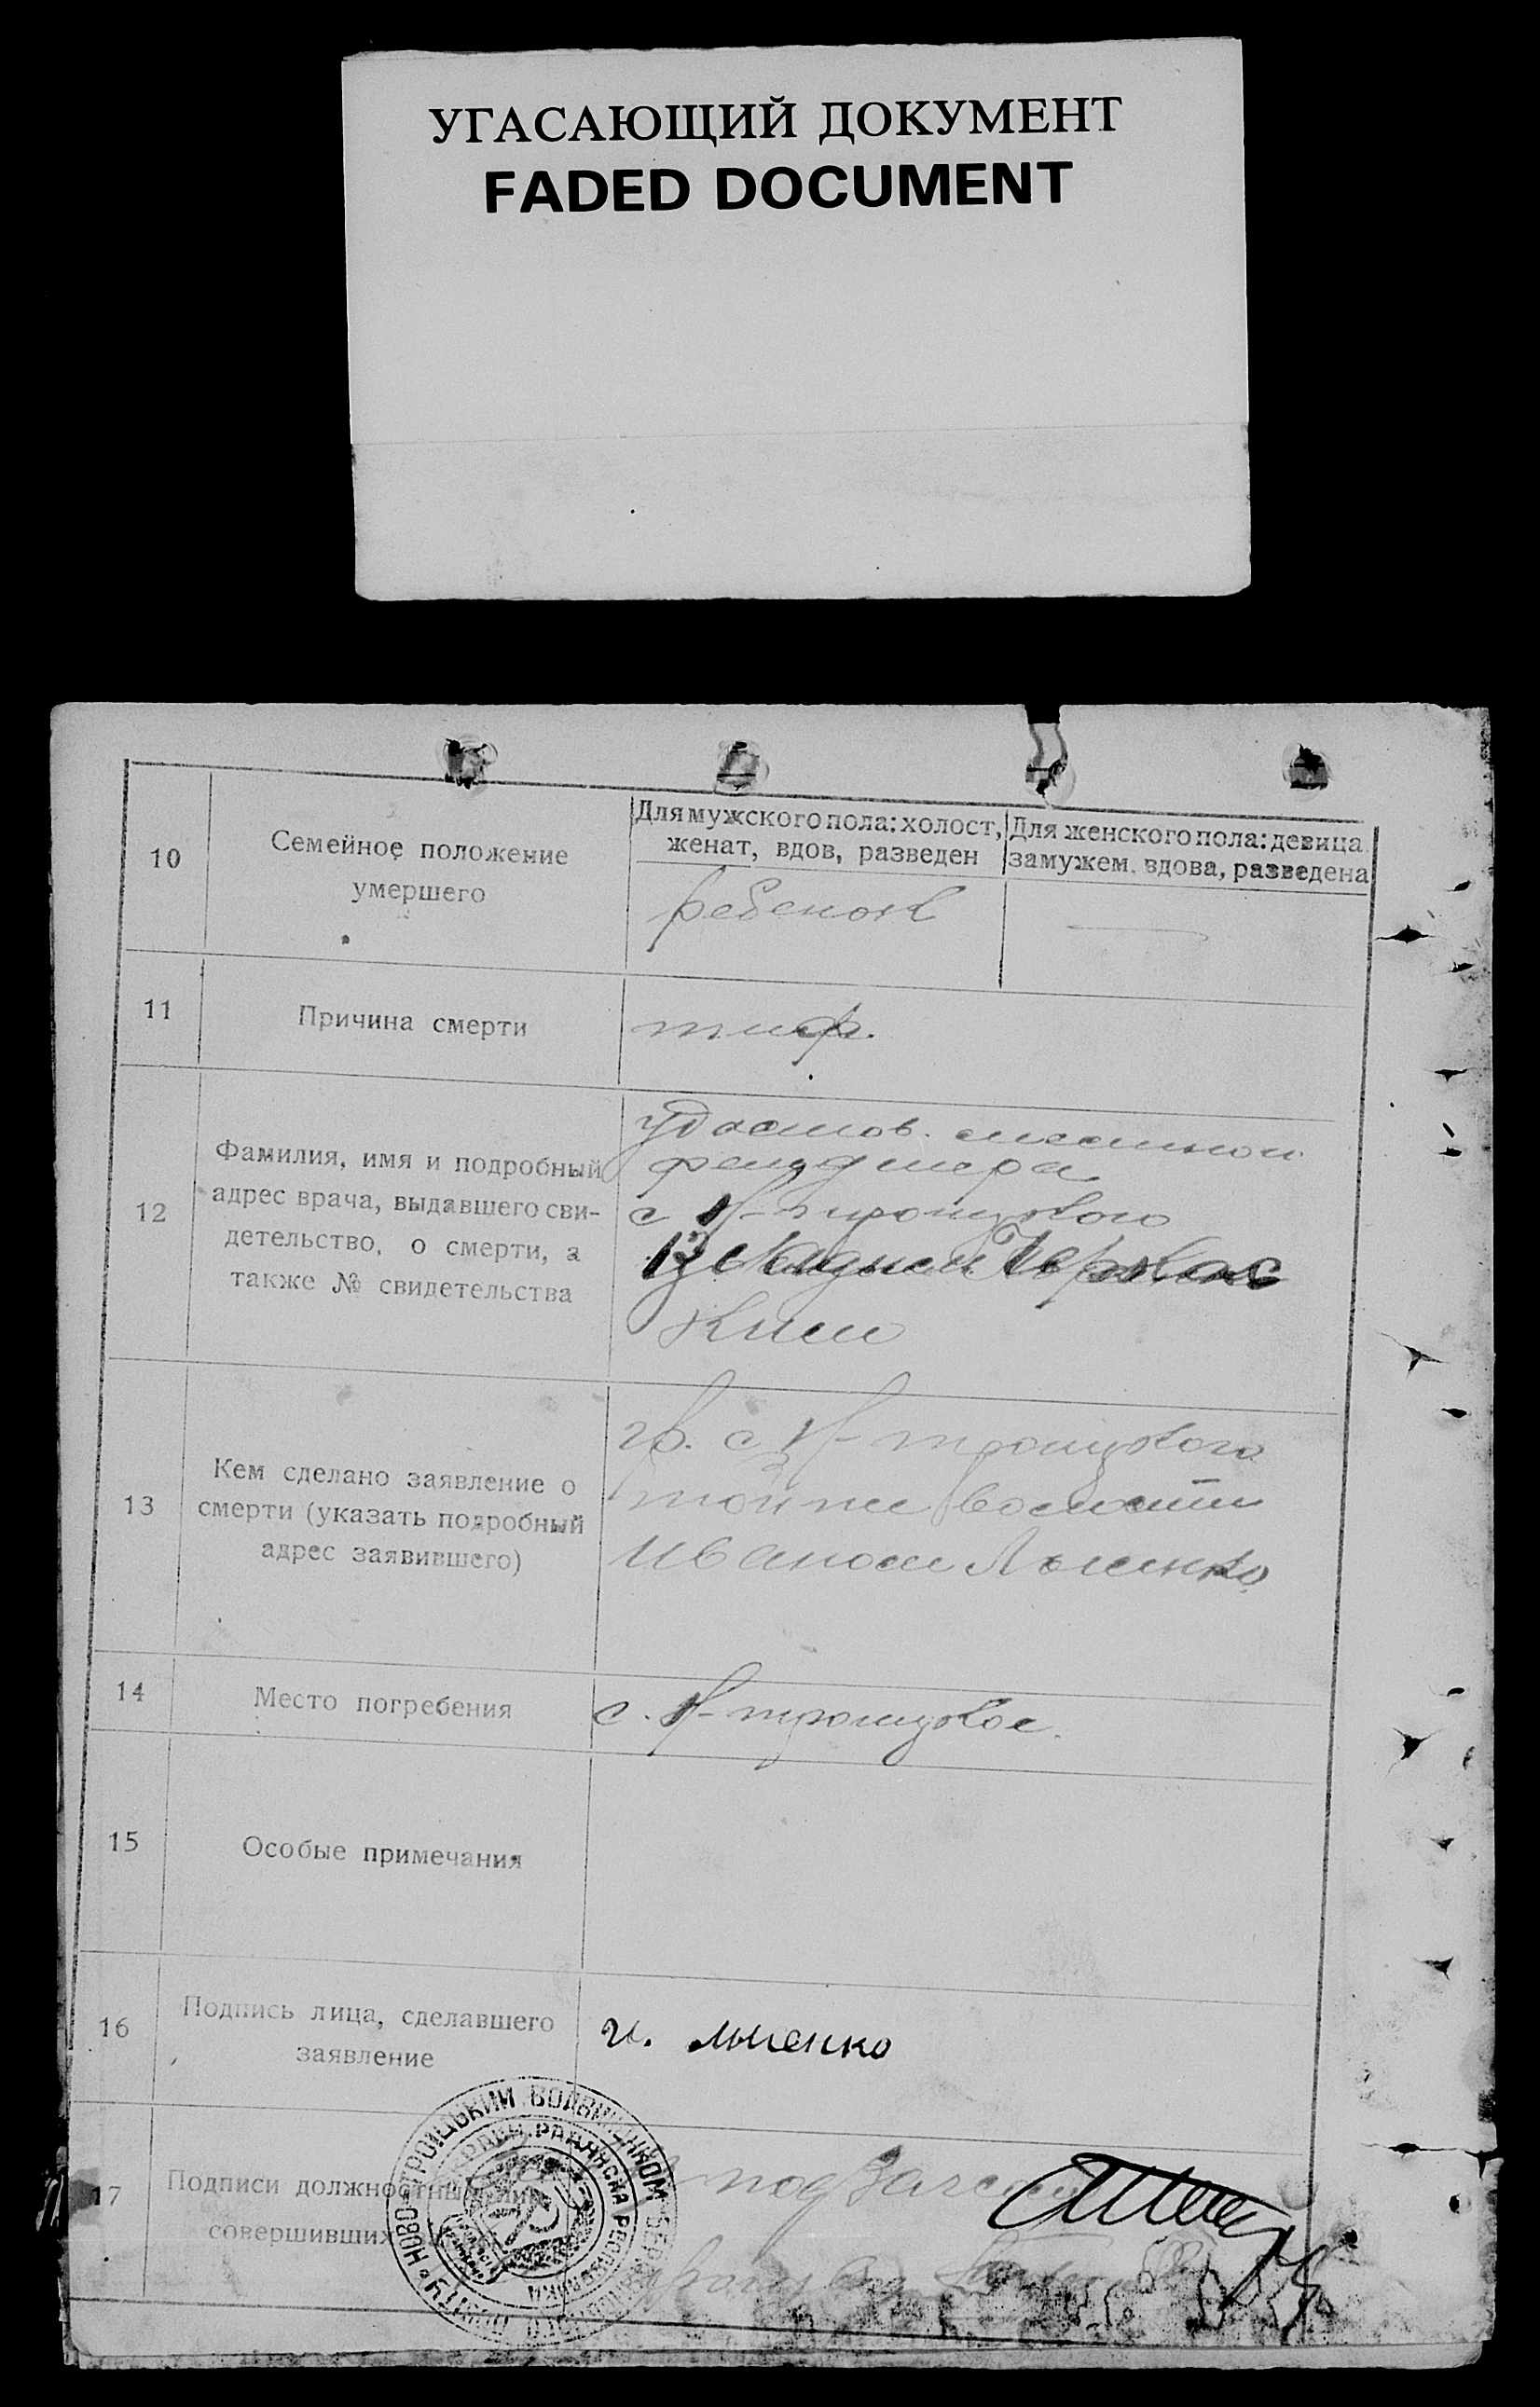 УГАСАЮЩИЙ ДОКУМЕНТ
FADED DOCUMENT
10
Семейное положение
умершего
Для мужского пола: холост,
женат, вдов, разведен
Для женского пола: девица
замужем, вдова, разведена
ребенок
11
Причина смерти
тиф.
12
Фамилия, имя и подробный
адрес врача, выдавшего сви-
детельство, о смерти, а
также № свидетельства
удостов.
фельдшера
с Н-троицкого
13
Кем сделано заявление о
смерти (указать подробный
адрес заявившего)
гр. с Н-троицкого
той же волости
Иваном Лыенко
14
Место погребения
с. Н-троицкое.
15
Особые примечания
16
Подпись лица, сделавшего
заявление
И. Лыенко
17
Подписи должностных
совершивших
НОВО-ТРОIЦЬКИЙ ВОЛВИКОНКОМ
РАДЯНСКА